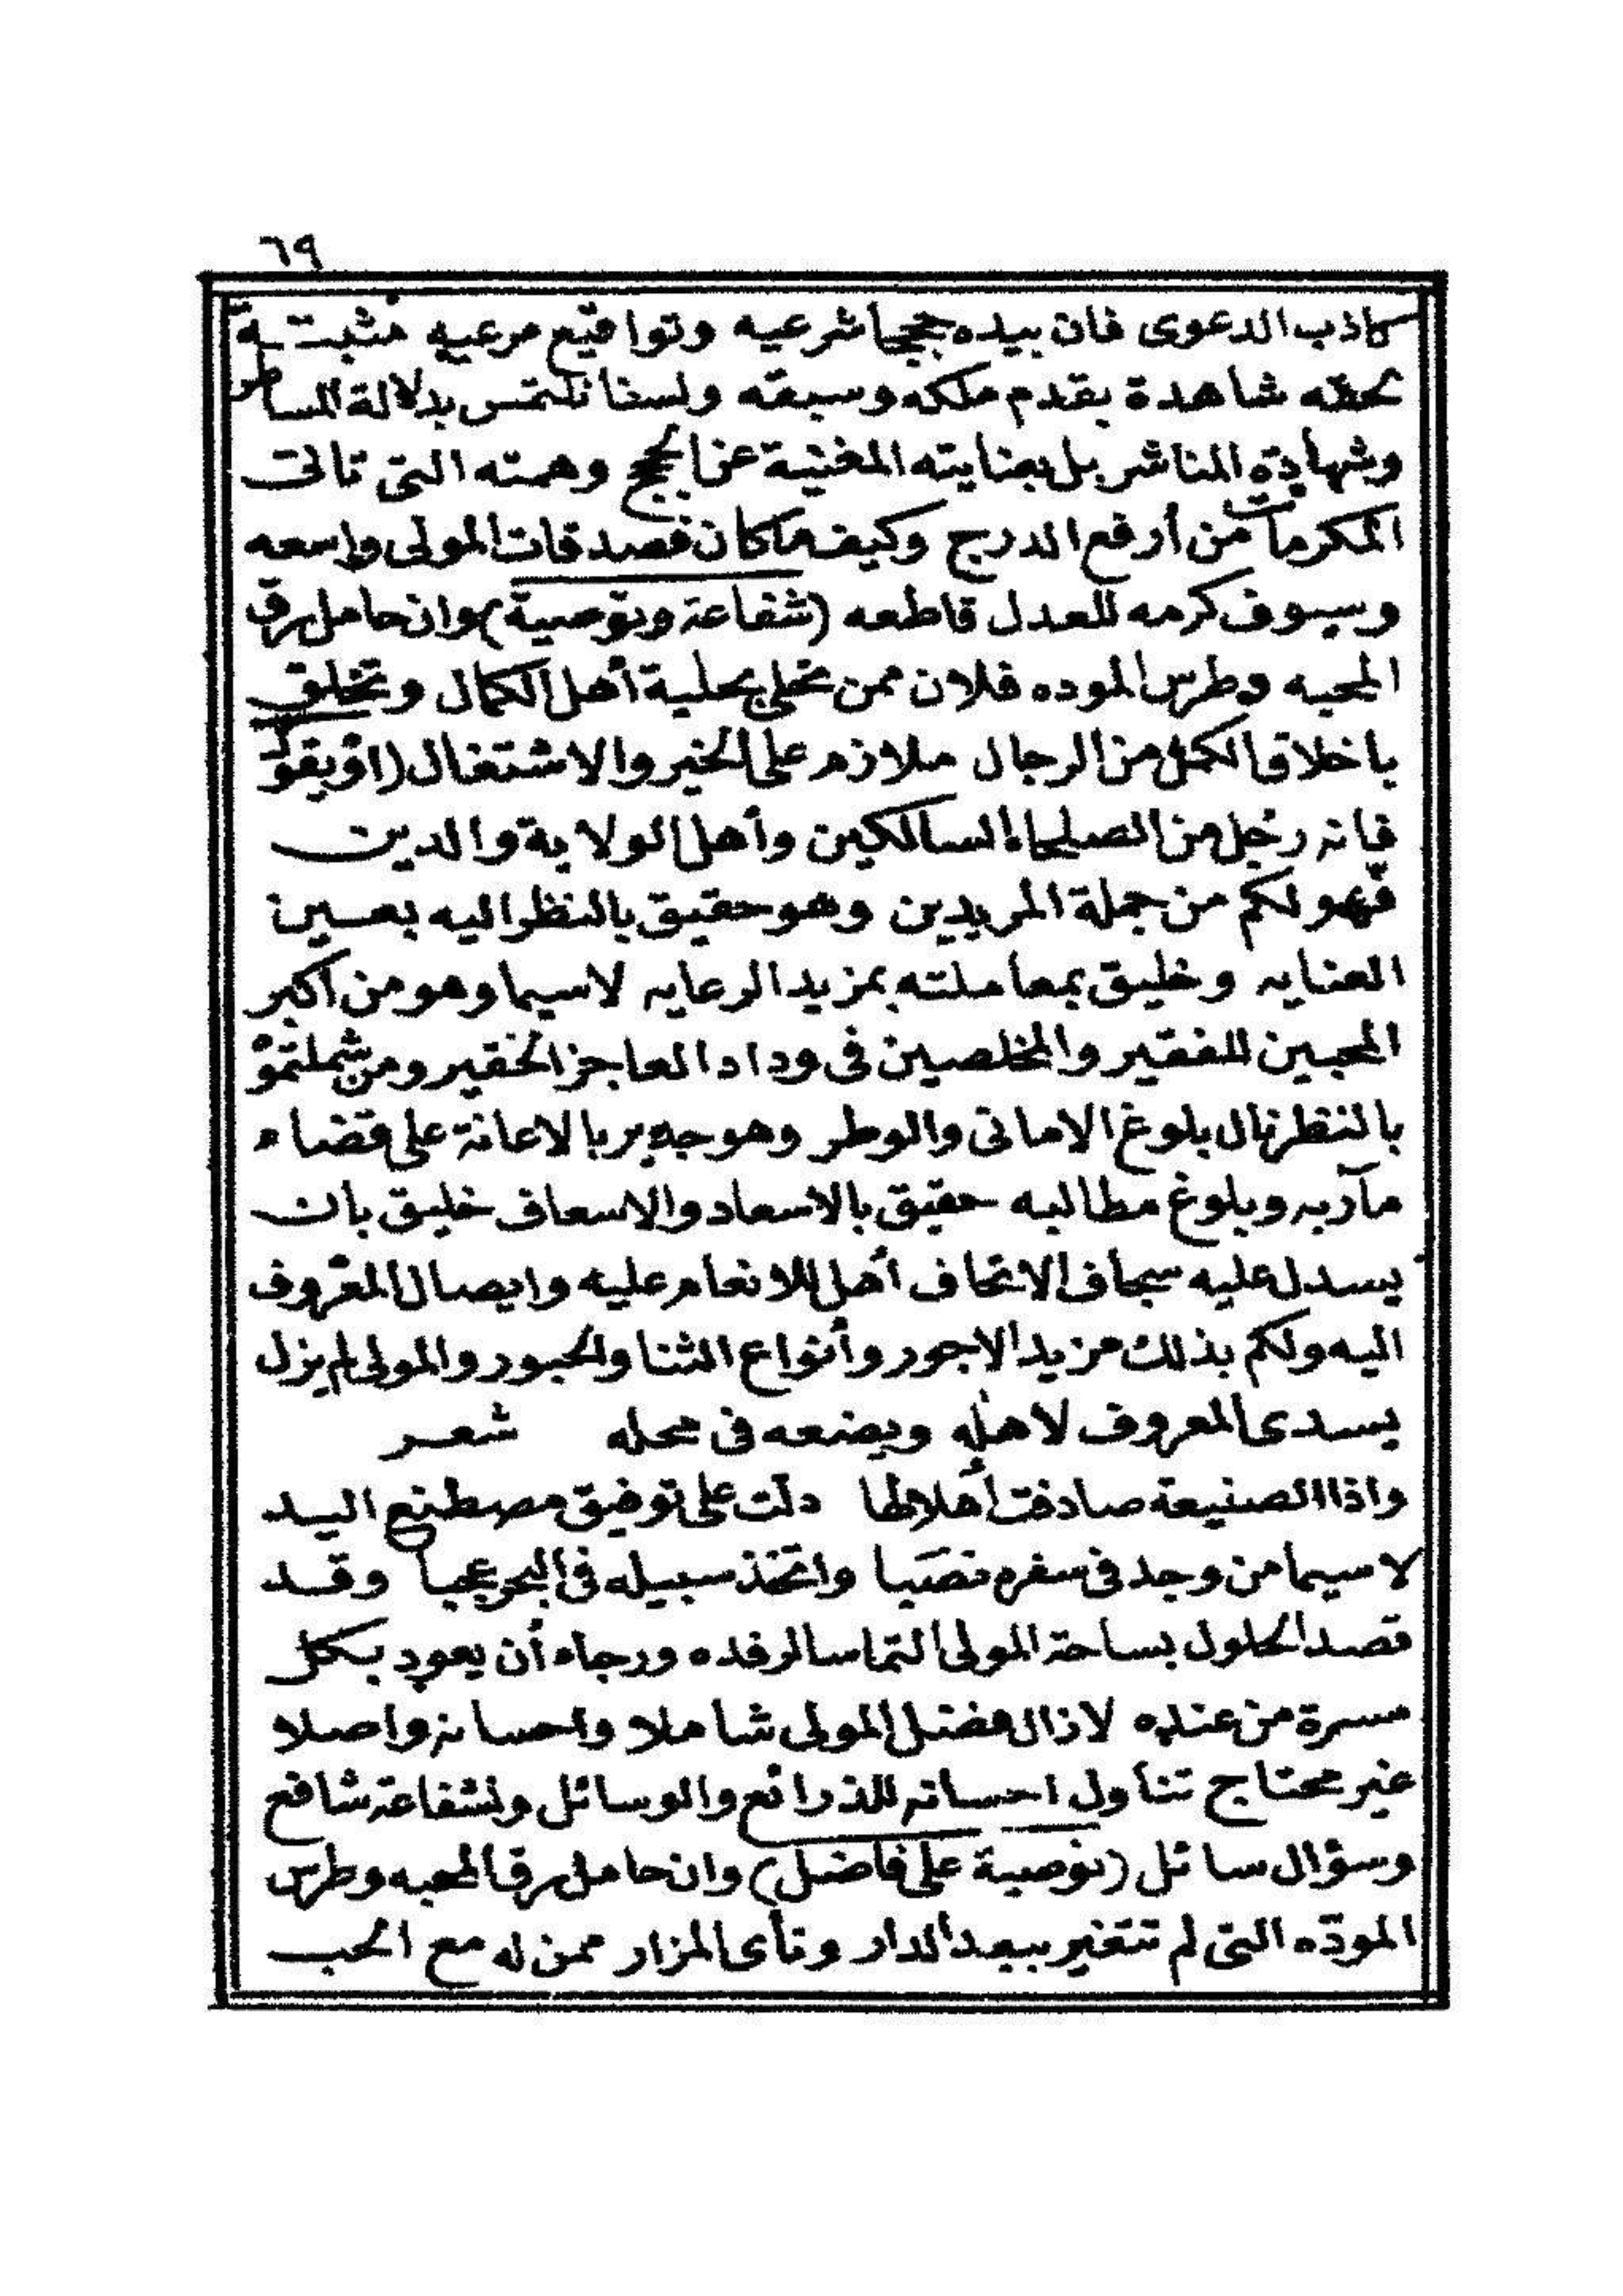 ٦٩
كاذب الدعوى فان بيده حججا شرعيه وتواقيع مرعيه مثبتة
بحقه شاهدة بقدم ملكه وسبقه ولسنا نلتمس بدلالة المساطر
وشهادة المناشر بل بعنايته المغنية عن الحجج وهمته التى نالت
المكرمات من أرفع الدرج وكيف ماكان فصدقات المولى واسعه
وسيوف كرمه للعدل قاطعه (شفاعة وتوصية) وان حامل رق
المحبه وطرس الموده فلان ممن تحلى بحلية أهل الكمال وتخلق
باخلاق الكمل من الرجال ملازم على الخير والاشتغال (أو يقول
فانه رجل من الصلحاء السالكين وأهل الولاية والدين
فهو لكم من جملة المريدين وهو حقيق بالنظر اليه بعين
العنايه وخليق بمعاملته بمزيد الرعايه لاسيما وهو من أكبر
المحبين للفقير والمخلصين فى وداد العاجز الحقير ومن شملتموه
بالنظر نال بلوغ الامانى والوطر وهو جدير بالاعانة على قضاء
مآربه وبلوغ مطالبه حقيق بالاسعاد والاسعاف خليق بان
يسدل عليه سجاف الاتحاف أهل للانعام عليه وايصال المعروف
اليه ولكم بذلك مزيد الاجور وأنواع الثنا والحبور والمولى لم يزل
يسدى المعروف لاهله ويضعه فى محله شعر
واذا الصنيعة صادفت أهلا لها دلت على توفيق مصطنع اليد
لاسيما من وجد فى سفره نصبا واتخذ سبيله فى البحر عجبا وقد
قصد الحلول بساحة المولى التماسا لرفده ورجاء أن يعود بكل
مسرة من عنده لازال فضل المولى شاملا واحسانه واصلا
غير محتاج تناول احسانه للذرائع والوسائل ولشفاعة شافع
وسؤال سائل (توصية على فاضل) وان حامل رق المحبه وطرس
المودّه التى لم تتغير ببعد الدار ونأى المزار ممن له مع الحب